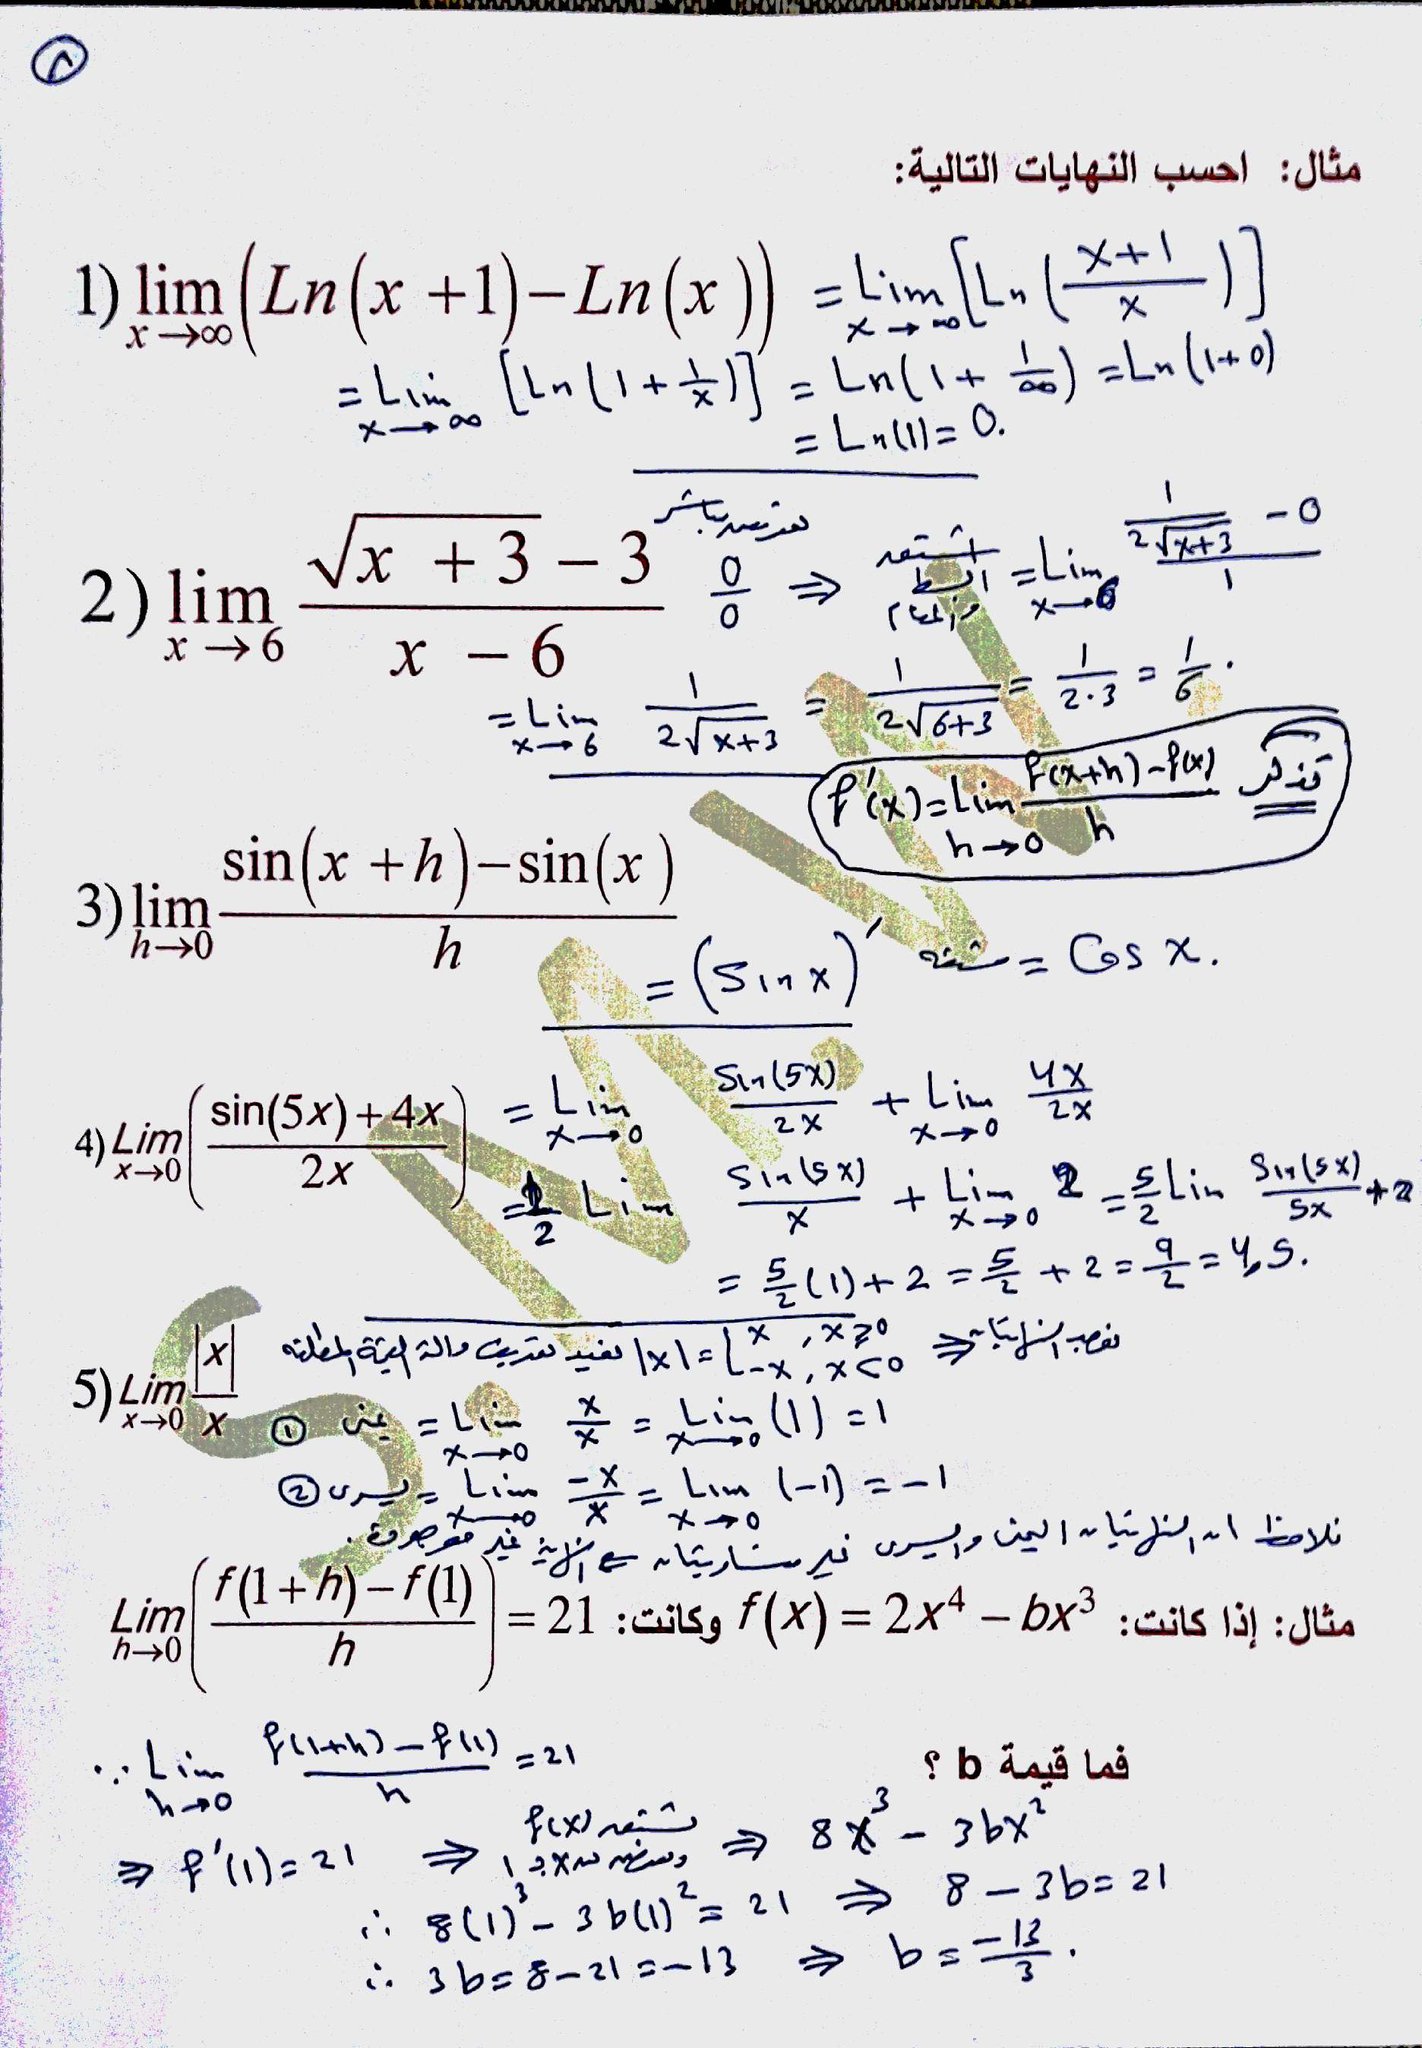 ٨
مثال: احسب النهايات التالية:
1) lim x→∞ (Ln(x+1)−Ln(x)) = Lim x→∞ [Ln(x+1/x)]
= Lim x→∞ [Ln(1+1/x)] = Ln(1+1/∞) = Ln(1+0)
= Ln(1) = 0.
2) lim x→6 √x+3 − 3 / x − 6 0/0 ⇒ = Lim x→6 1/2√x+3 − 0 / 1
= Lim x→6 1/2√x+3 = 1/2√6+3 = 1/2·3 = 1/6.
تذكر f'(x) = Lim h→0 f(x+h)−f(x)/h
3) lim h→0 sin(x+h)−sin(x) / h
= (Sin x)' مشتقة = Cos x.
4) Lim x→0 (sin(5x)+4x / 2x) = Lim x→0 Sin(5x)/2x + Lim x→0 4x/2x
= 1/2 Lim Sin(5x)/x + Lim x→0 2 = 5/2 Lim Sin(5x)/5x + 2
= 5/2 (1) + 2 = 5/2 + 2 = 9/2 = 4,5.
5) Lim x→0 |x|/x نعيد تعريف دالة القيمة المطلقة |x| = { x , x≥0 -x , x<0 ⇒
① يمنى = Lim x→0 x/x = Lim x→0 (1) = 1
② يسرى = Lim x→0 -x/x = Lim x→0 (-1) = -1
نلاحظ ان النهايتان اليمنى واليسرى غير متساويتان ⇐ النهاية غير موجودة.
مثال: إذا كانت: f(x) = 2x⁴ − bx³ وكانت: Lim h→0 (f(1+h)−f(1) / h) = 21
فما قيمة b ؟
∵ Lim h→0 f(1+h)−f(1)/h = 21
⇒ f'(1) = 21 ⇒ نشتق f(x) ⇒ 8x³ − 3bx²
∴ 8(1)³ − 3b(1)² = 21 ⇒ 8 − 3b = 21
∴ 3b = 8−21 = −13 ⇒ b = −13/3.